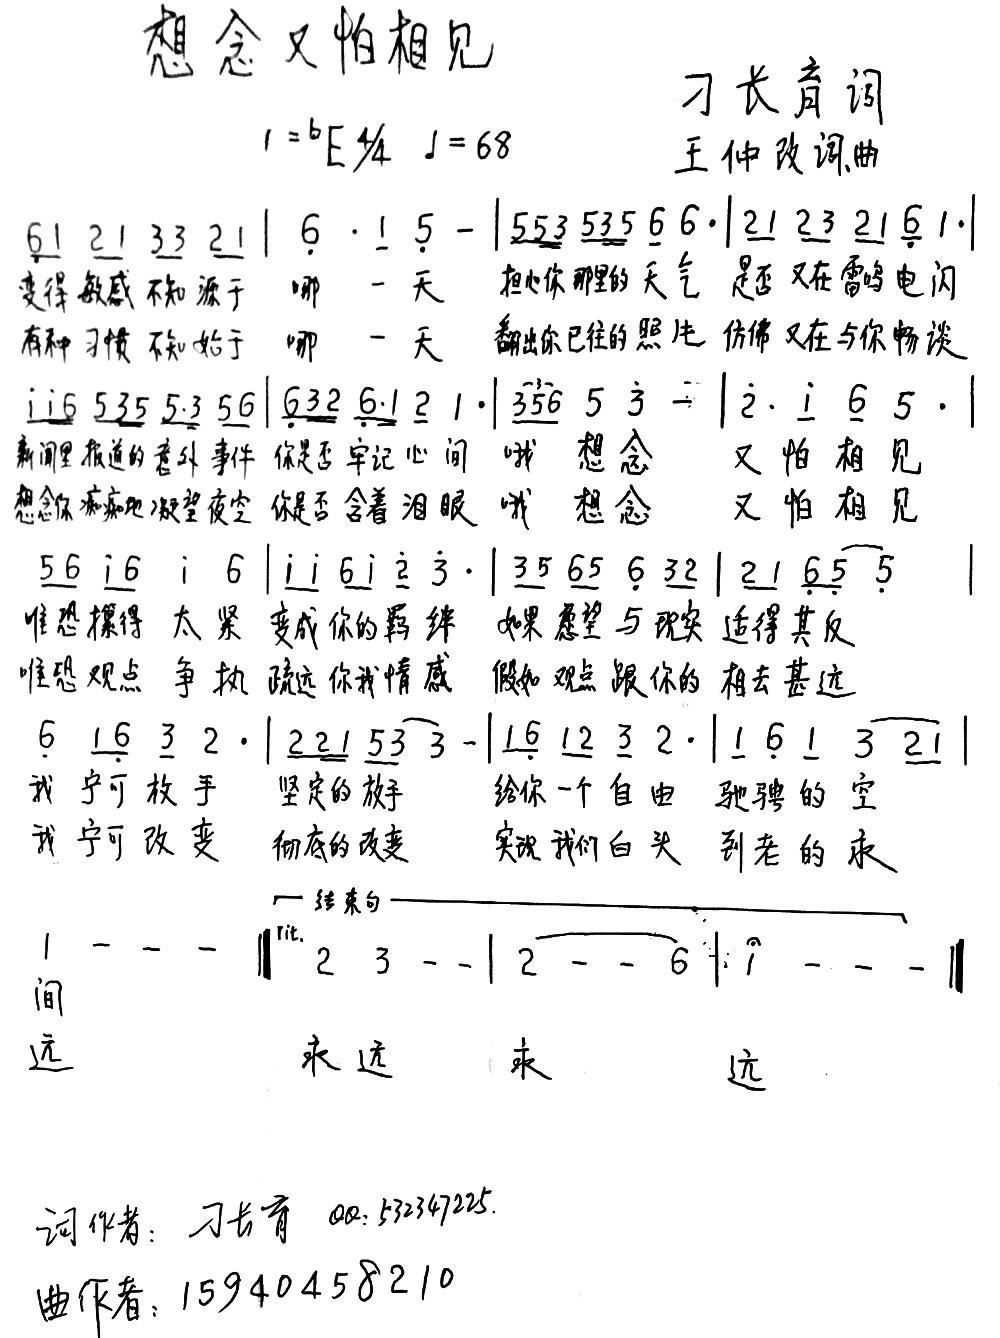 想念又怕相见
刁长育词
1=♭E 4/4 ♩=68
王仲改词、曲
61 21 33 21 | 6 · 1 5 - | 553 535 6 6 · | 21 23 21 6 1 · |
变得 敏感 不知 源于 哪 一 天 担心你 那里的 天 气 是否 又在 雷鸣 电 闪
有种 习惯 不知 始于 哪 一 天 翻出你 已往的 照 片 仿佛 又在 与你 畅 谈
i i 6 535 5·3 56 | 632 6·1 2 1 · | 356 5 3 - | 2 · i 6 5 · |
新闻里 报道的 意外 事件 你是否 牢记 心 间 哦 想 念 又 怕 相 见
想念你 痴痴地 凝望 夜空 你是否 含着 泪 眼 哦 想 念 又 怕 相 见
56 i6 i 6 | i i 6i 2 3 · | 35 65 6 32 | 21 65 5 |
唯恐 攥得 太 紧 变成 你的 羁 绊 如果 愿望 与 现实 适得 其反
唯恐 观点 争 执 疏远 你我 情 感 假如 观点 跟 你的 相去 甚远
6 16 3 2 · | 221 53 3 - | 16 12 3 2 · | 1 6 1 3 21 |
我 宁可 放 手 坚定的 放手 给你 一个 自 由 驰 骋 的 空
我 宁可 改 变 彻底的 改变 实现 我们 白 头 到 老 的 永
结束句
1 - - - ‖ rit. 2 3 - - | 2 - - 6 | i - - - ‖
间
远 永 远 永 远
词作者：刁长育 QQ:532347225.
曲作者：15940458210